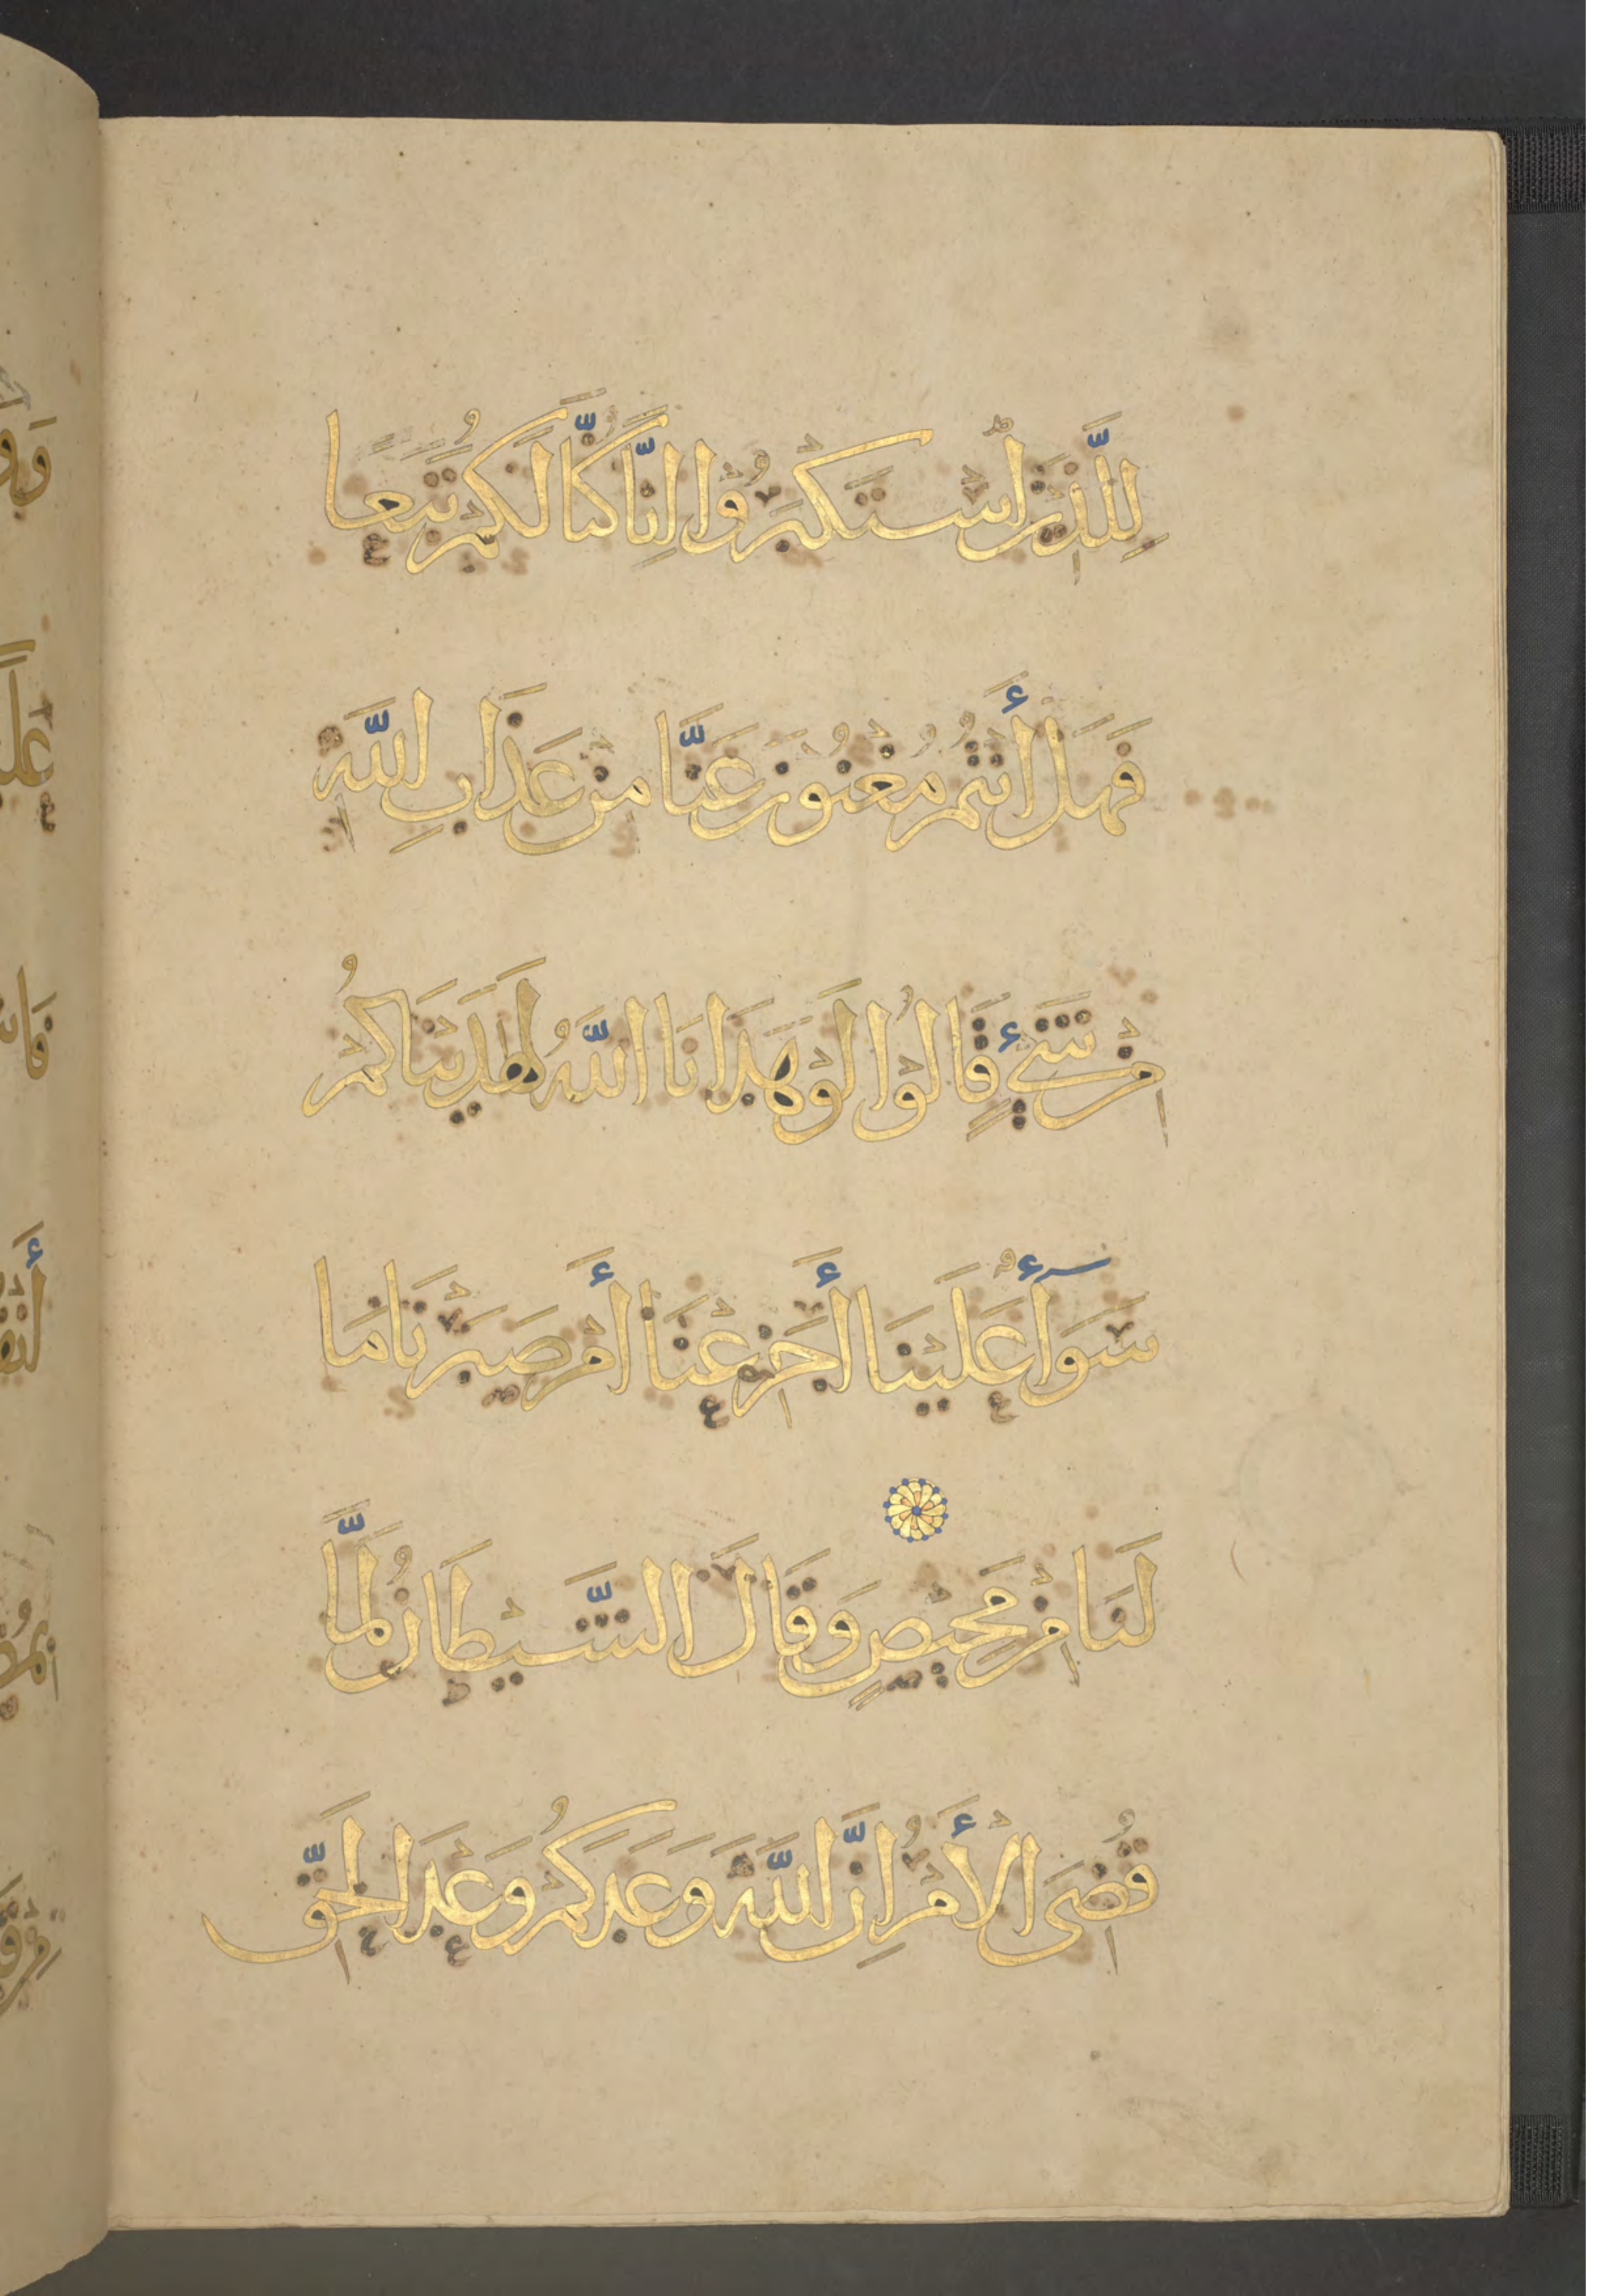 لِلَّذِينَ اسْتَكْبَرُوا إِنَّا كُنَّا لَكُمْ تَبَعًا
فَهَلْ أَنْتُمْ مُغْنُونَ عَنَّا مِنْ عَذَابِ اللَّهِ
مِنْ شَيْءٍ قَالُوْا لَوْ هَدَانَا اللَّهُ لَهَدَيْنَاكُمْ
سَوَآءٌ عَلَيْنَا أَجَزِعْنَا أَمْ صَبَرْنَا مَا
لَنَا مِنْ مَحِيصٍ وَقَالَ الشَّيْطَانُ لَمَّا
قُضِىَ الْأَمْرُ إِنَّ اللَّهَ وَعَدَكُمْ وَعْدَ الْحَقِّ